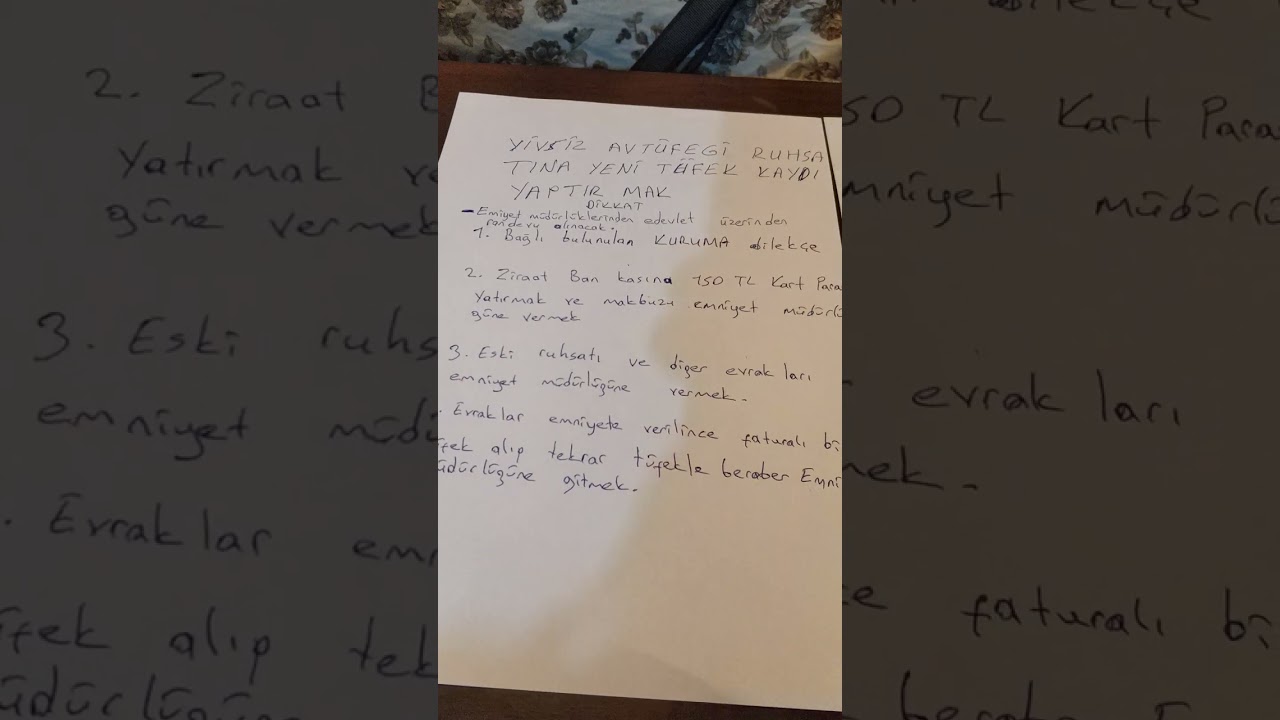 YİVSİZ AV TÜFEGİ RUHSA
TINA YENİ TÜFEK KAYDI
YAPTIR MAK
DİKKAT
- Emiyet müdürlüklerinden edevlet üzerinden
randevu alınacak.
1. Bağlı bulunulan KURUMA dilekçe
2. Ziraat Ban kasına 150 TL Kart Para
Yatırmak ve makbuzu emniyet müdürlü
güne vermek
3. Eski ruhsatı ve diğer evrak ları
emniyet müdürlügüne vermek.
. Evraklar emniyete verilince faturalı bi
üfek alıp tekrar tüfekle beraber Emni
üdürlügüne gitmek.